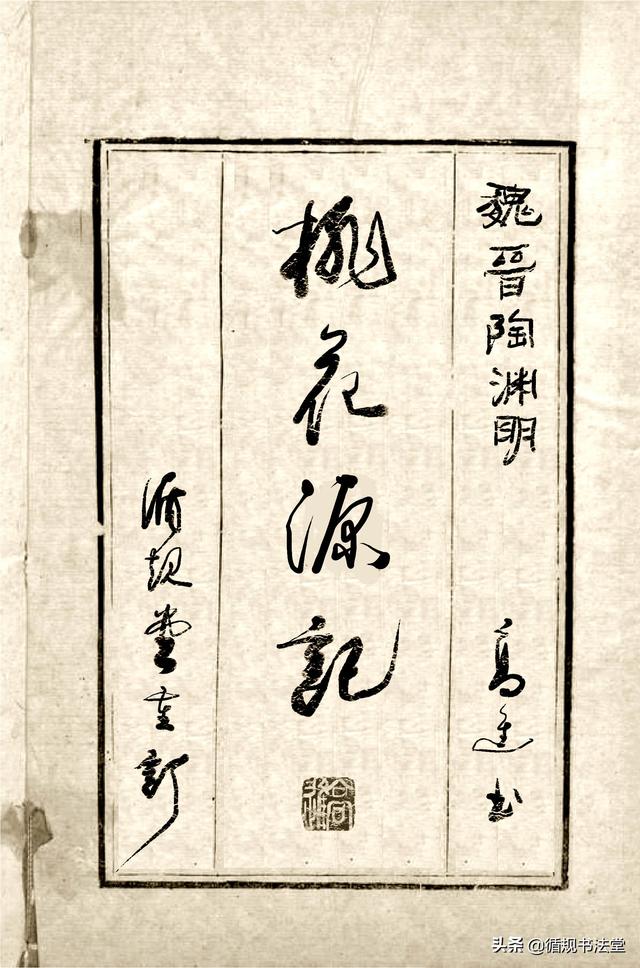 魏晋陶渊明
高 书
桃花源記
循规堂重訂
头条 @循规书法堂